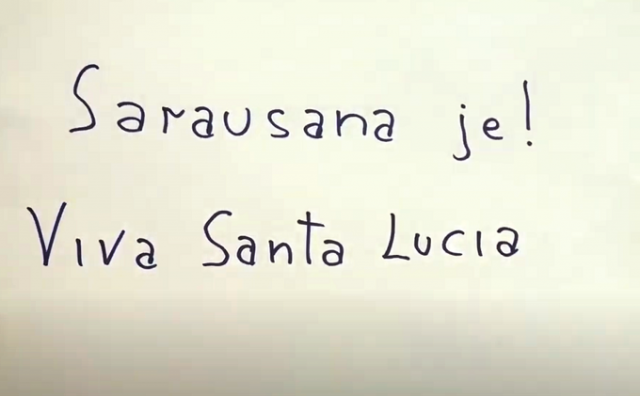 Sarausana je!
Viva Santa Lucia